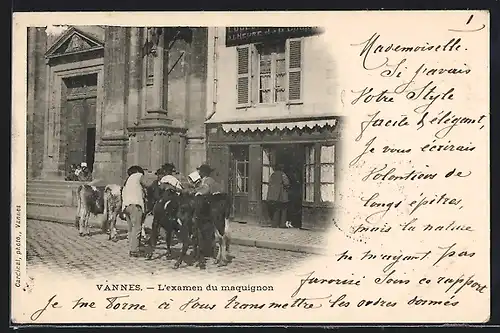 1
Mademoiselle.
Si j'avais
Votre Style
facile & élégant,
Je vous écrirais
Volontiers de
longs épitres,
mais la nature
ne m'ayant pas
favorisé sous ce rapport
Je me borne à vous transmettre les ordres donnés
VANNES. — L'examen du maquignon
Cardinal, photo., Vannes